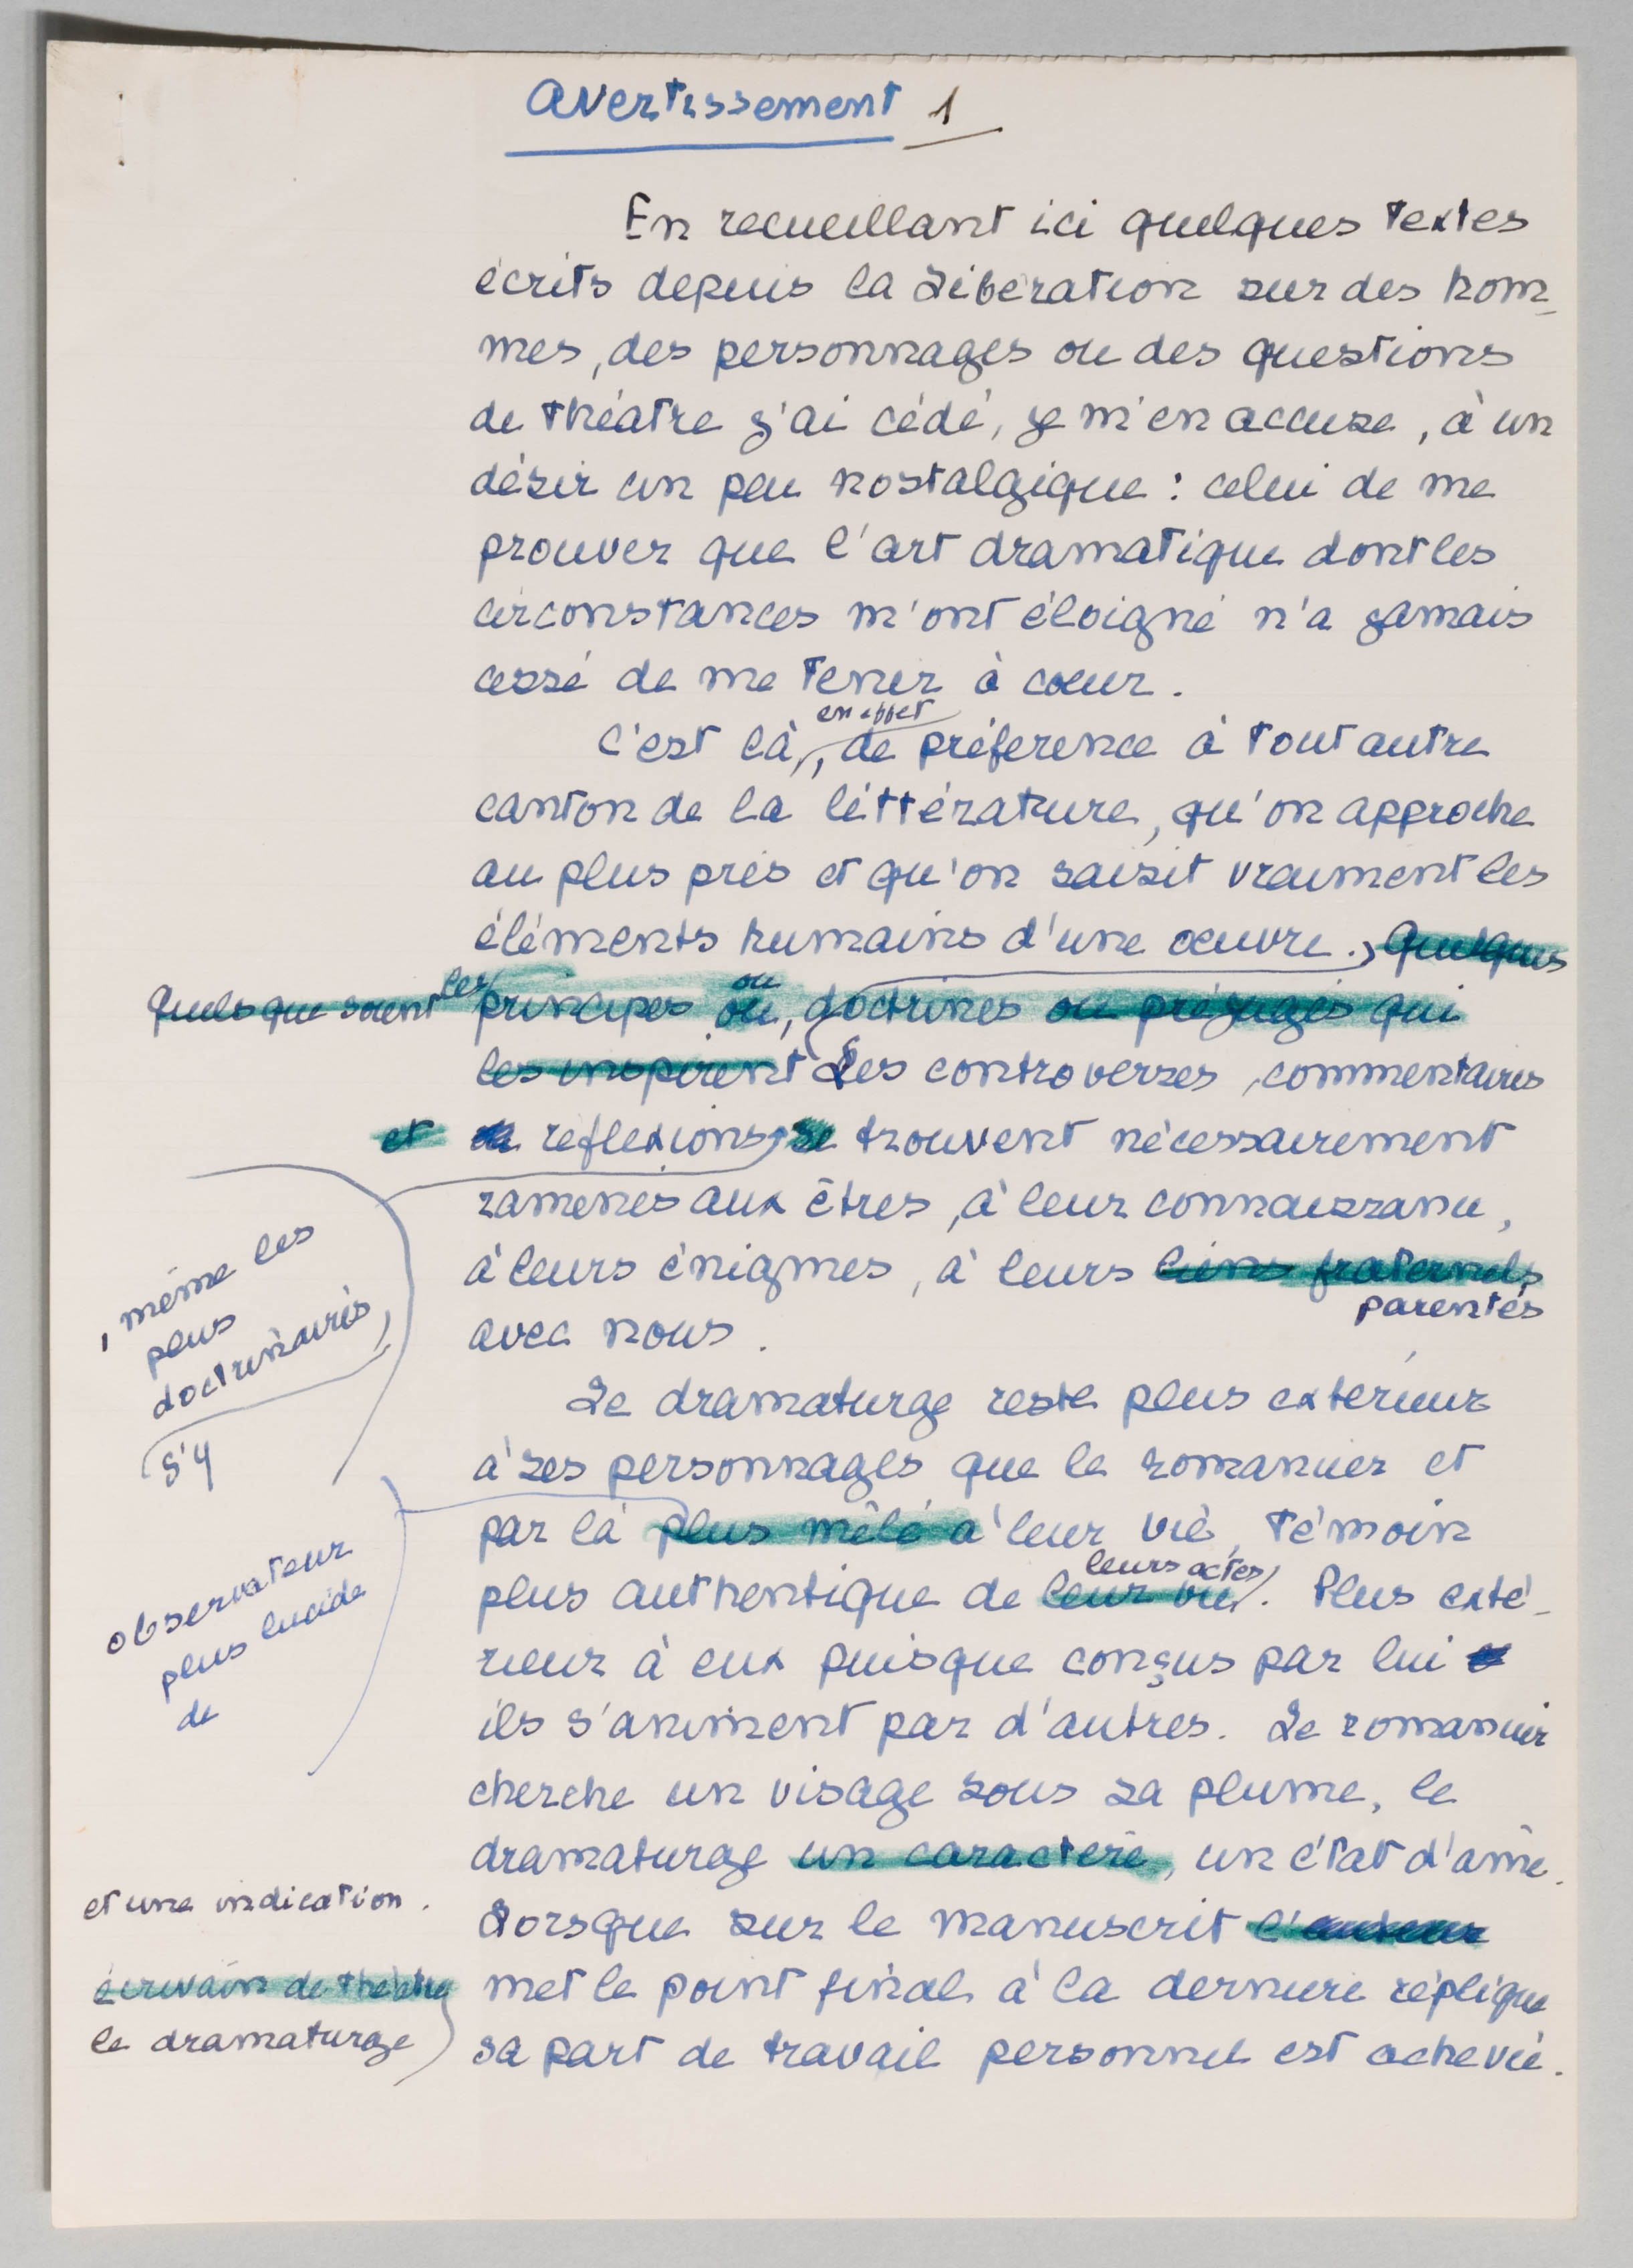 Avertissement 1
En recueillant ici quelques textes
écrits depuis la Libération sur des hom-
mes, des personnages ou des questions
de théâtre j'ai cédé, je m'en accuse, à un
désir un peu nostalgique : celui de me
prouver que l'art dramatique dont les
circonstances m'ont éloigné n'a jamais
cessé de me tenir à coeur.
en effet
C'est là, de préférence à tout autre
canton de la littérature, qu'on approche
au plus près et qu'on saisit vraiment les
éléments humains d'une oeuvre. Quelques
Quels que soient les principes ou, doctrines ou préjugés qui
ou
les inspirent Les controverses, commentaires
et réflexions, se trouvent nécessairement
ramenés aux êtres, à leur connaissance,
à leurs énigmes, à leurs liens fraternels
parentés
avec nous.
, même les
plus
doctrinaires,
s'y
Le dramaturge reste plus extérieur
à ses personnages que le romancier et
par là plus mêlé à leur vie, témoin
leurs actes
plus authentique de leur vie. Plus exté-
rieur à eux puisque conçus par lui
ils s'animent par d'autres. Le romancier
observateur
plus lucide
de
cherche un visage sous sa plume, le
dramaturge un caractère, un état d'âme.
et une indication.
Lorsque sur le manuscrit l'auteur
écrivain de théâtre
le dramaturge
met le point final à la dernière réplique
sa part de travail personnel est achevée.